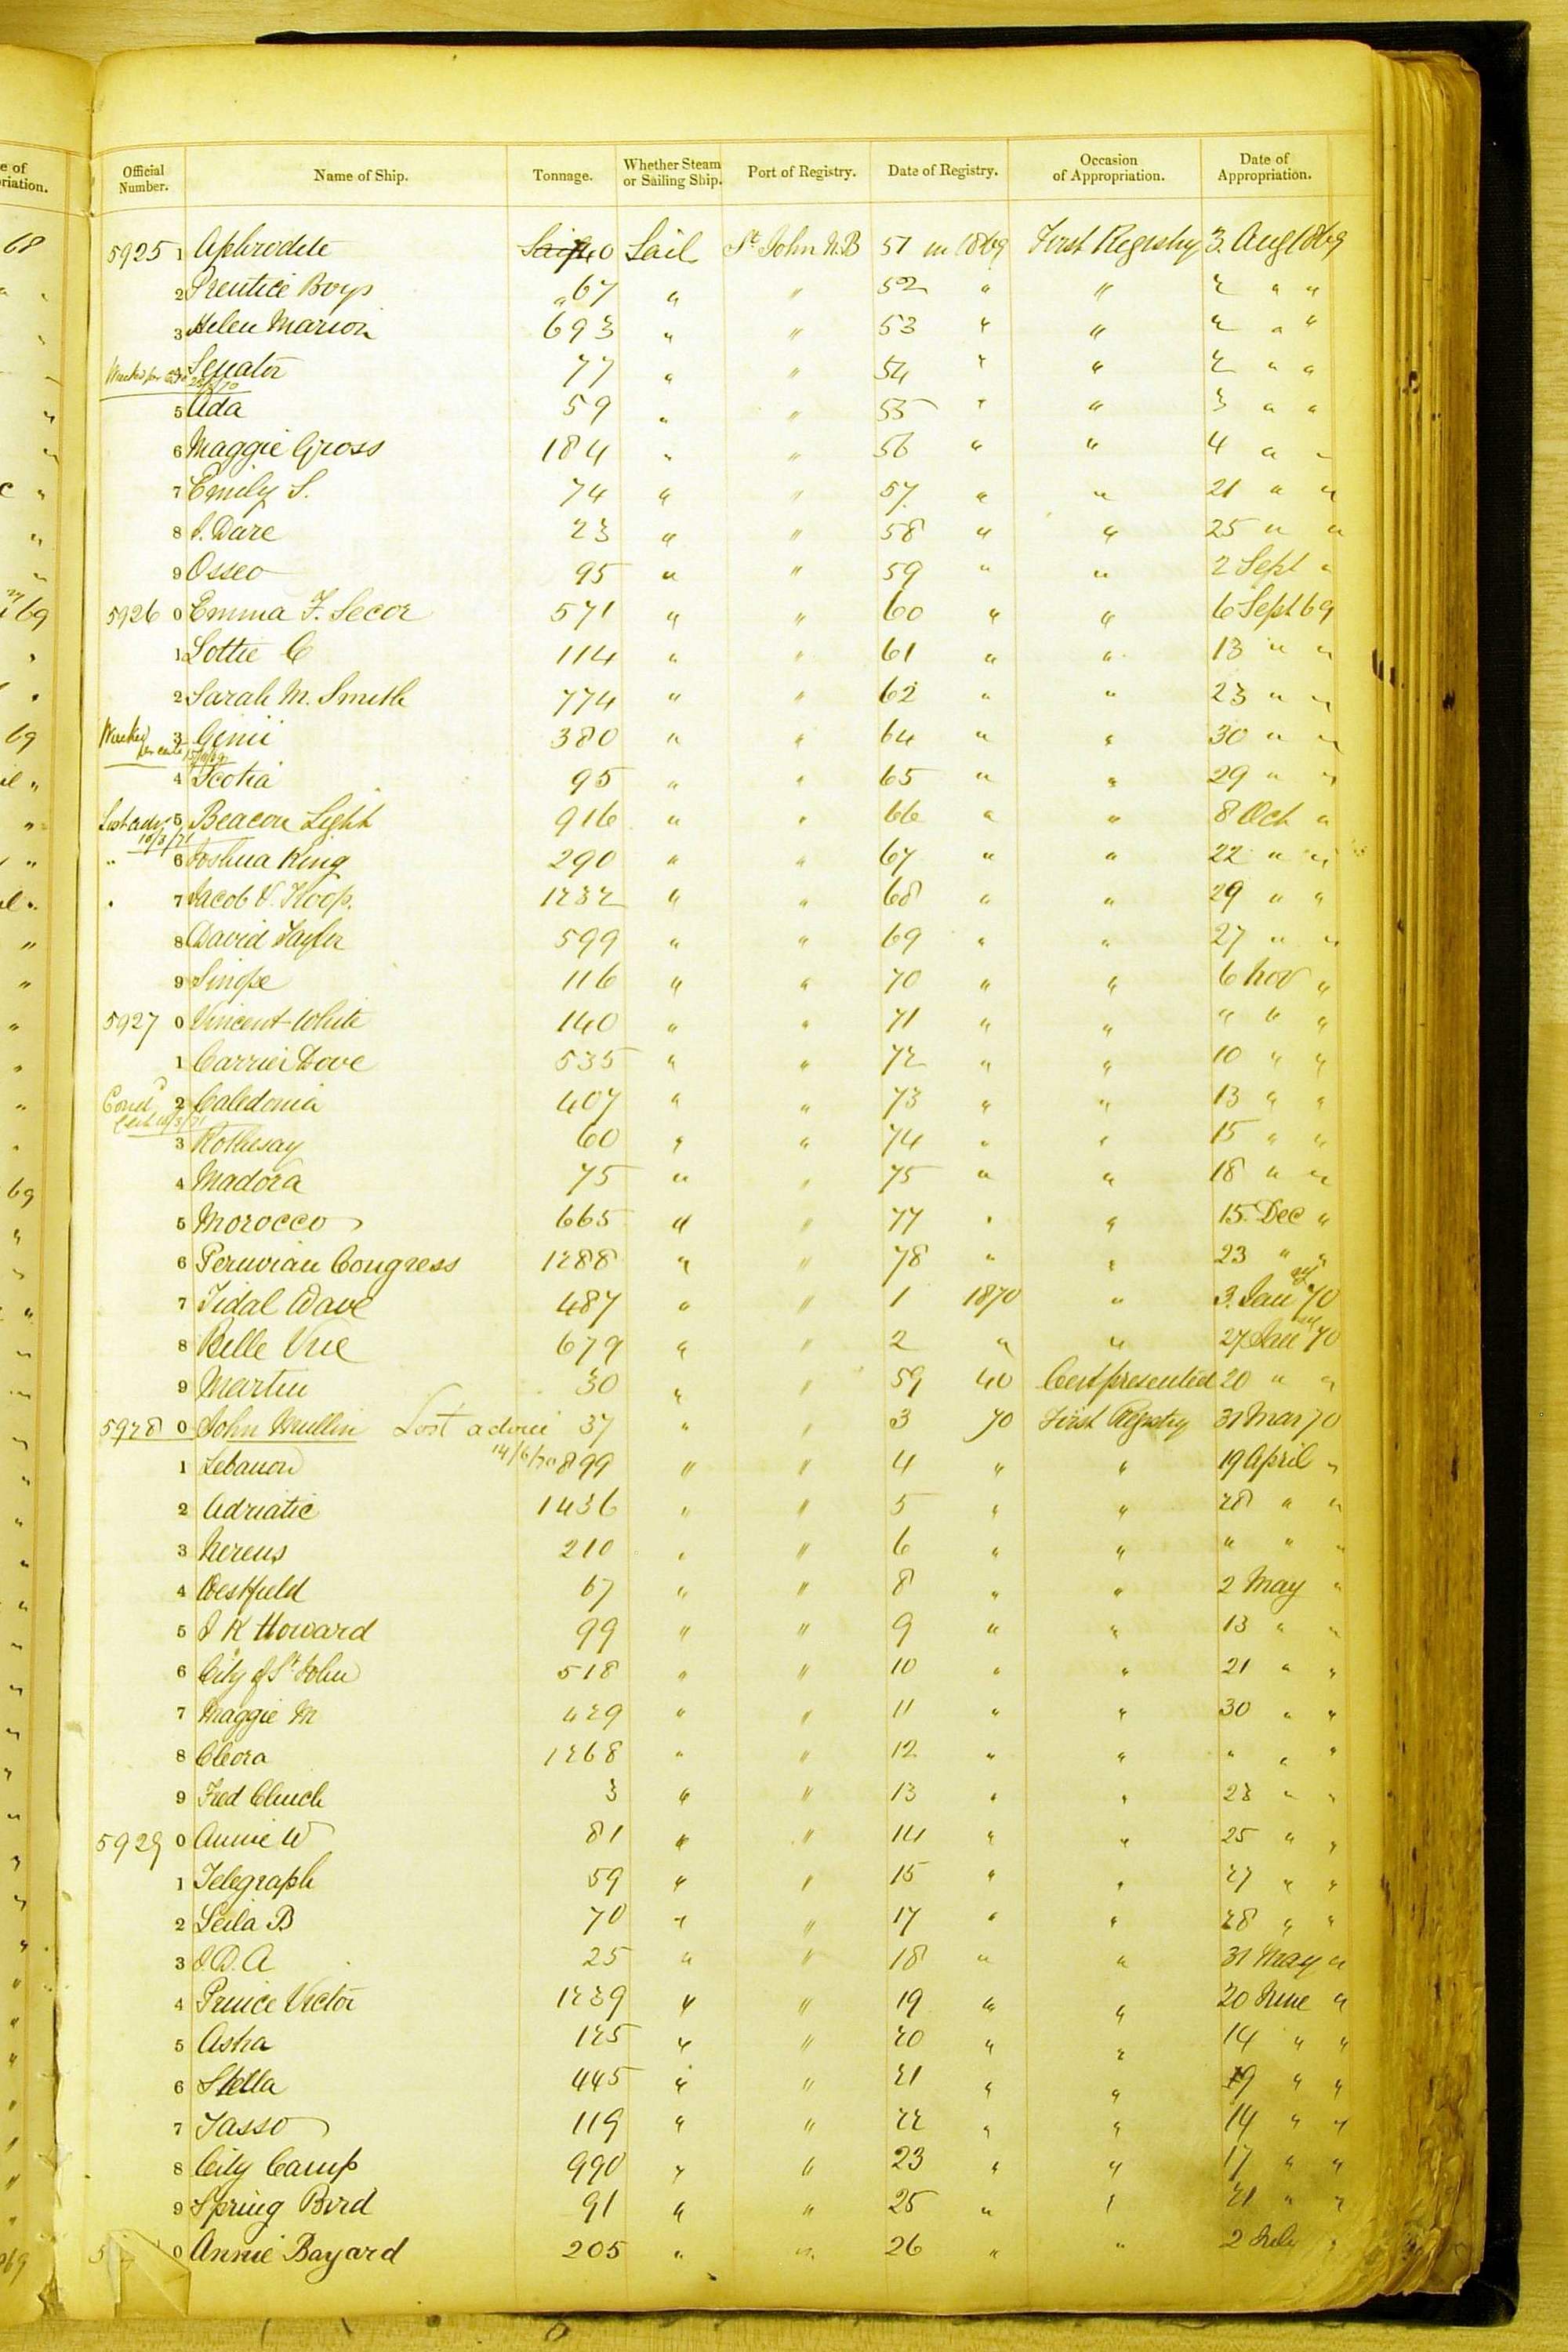 Official Number. Name of Ship. Tonnage. Whether Steam or Sailing Ship. Port of Registry. Date of Registry. Occasion of Appropriation. Date of Appropriation.
5925 1 Aphrodite 40 Sail St John N.B 51 in 1869 First Registry 3 Aug 1869
2 Prentice Boys 67 " " 52 " " " "
3 Helen Marion 693 " " 53 " " " "
Senator 77 " " 54 " " " "
5 Ada 59 " " 55 " " 3 " "
6 Maggie Gross 184 " " 56 " " 4 " "
7 Emily S. 74 " " 57 " " 21 " "
8 J. Dare 23 " " 58 " " 25 " "
9 Osseo 95 " " 59 " " 2 Sept "
5926 0 Emma F. Secor 571 " " 60 " " 6 Sept 69
1 Lottie C 114 " " 61 " " 13 " "
2 Sarah M. Smith 774 " " 62 " " 23 " "
Wrecked 3 Genii 380 " " 64 " " 30 " "
4 Scotia 95 " " 65 " " 29 " "
5 Beacon Light 916 " " 66 " " 8 Oct "
10/3/71
" 6 Joshua King 290 " " 67 " " 22 " "
7 Jacob V. Troop. 1232 " " 68 " " 29 " "
8 David Taylor 599 " " 69 " " 27 " "
9 Sinope 116 " " 70 " " 6 Nov "
5927 0 Vincent White 140 " " 71 " " " " "
1 Carrier Dove 535 " " 72 " " 10 " "
2 Caledonia 407 " " 73 " " 13 " "
3 Rothesay 60 " " 74 " " 15 " "
4 Madora 75 " " 75 " " 18 " "
5 Morocco 665 " " 77 " " 15 Dec "
6 Peruvian Congress 1288 " " 78 " " 23 " "
7 Tidal Wave 487 " " 1 1870 " 3. Jany 70
8 Belle Vue 679 " " 2 " " 27 Jany 70
9 Martin 30 " " 59 40 Cert presented 20 " "
5928 0 John Mullin Lost advice 37 " " 3 70 First Registry 31 Mar 70
14/6/70
1 Lebanon 899 " " 4 " " 19 April "
2 Adriatic 1436 " " 5 " " 28 " "
3 Nereus 210 " " 6 " " " " "
4 Westfield 67 " " 8 " " 2 May "
5 J K Howard 99 " " 9 " " 13 " "
6 City of St John 518 " " 10 " " 21 " "
7 Maggie M 429 " " 11 " " 30 " "
8 Cleora 1268 " " 12 " " " " "
9 Fred Clinch 3 " " 13 " " 23 " "
5929 0 Annie W 81 " " 14 " " 25 " "
1 Telegraph 59 " " 15 " " 27 " "
2 Leila B 70 " " 17 " " 28 " "
3 25 " " 18 " " 31 May "
4 Prince Victor 1239 " " 19 " " 20 June "
5 Asha 125 " " 20 " " 14 " "
6 Stella 445 " " 21 " " 19 " "
7 Tasso 119 " " 22 " " 14 " "
8 City Camp 990 " " 23 " " 17 " "
9 Spring Bird 91 " " 25 " " 21 " "
0 Annie Bayard 205 " " 26 " " 2 July "